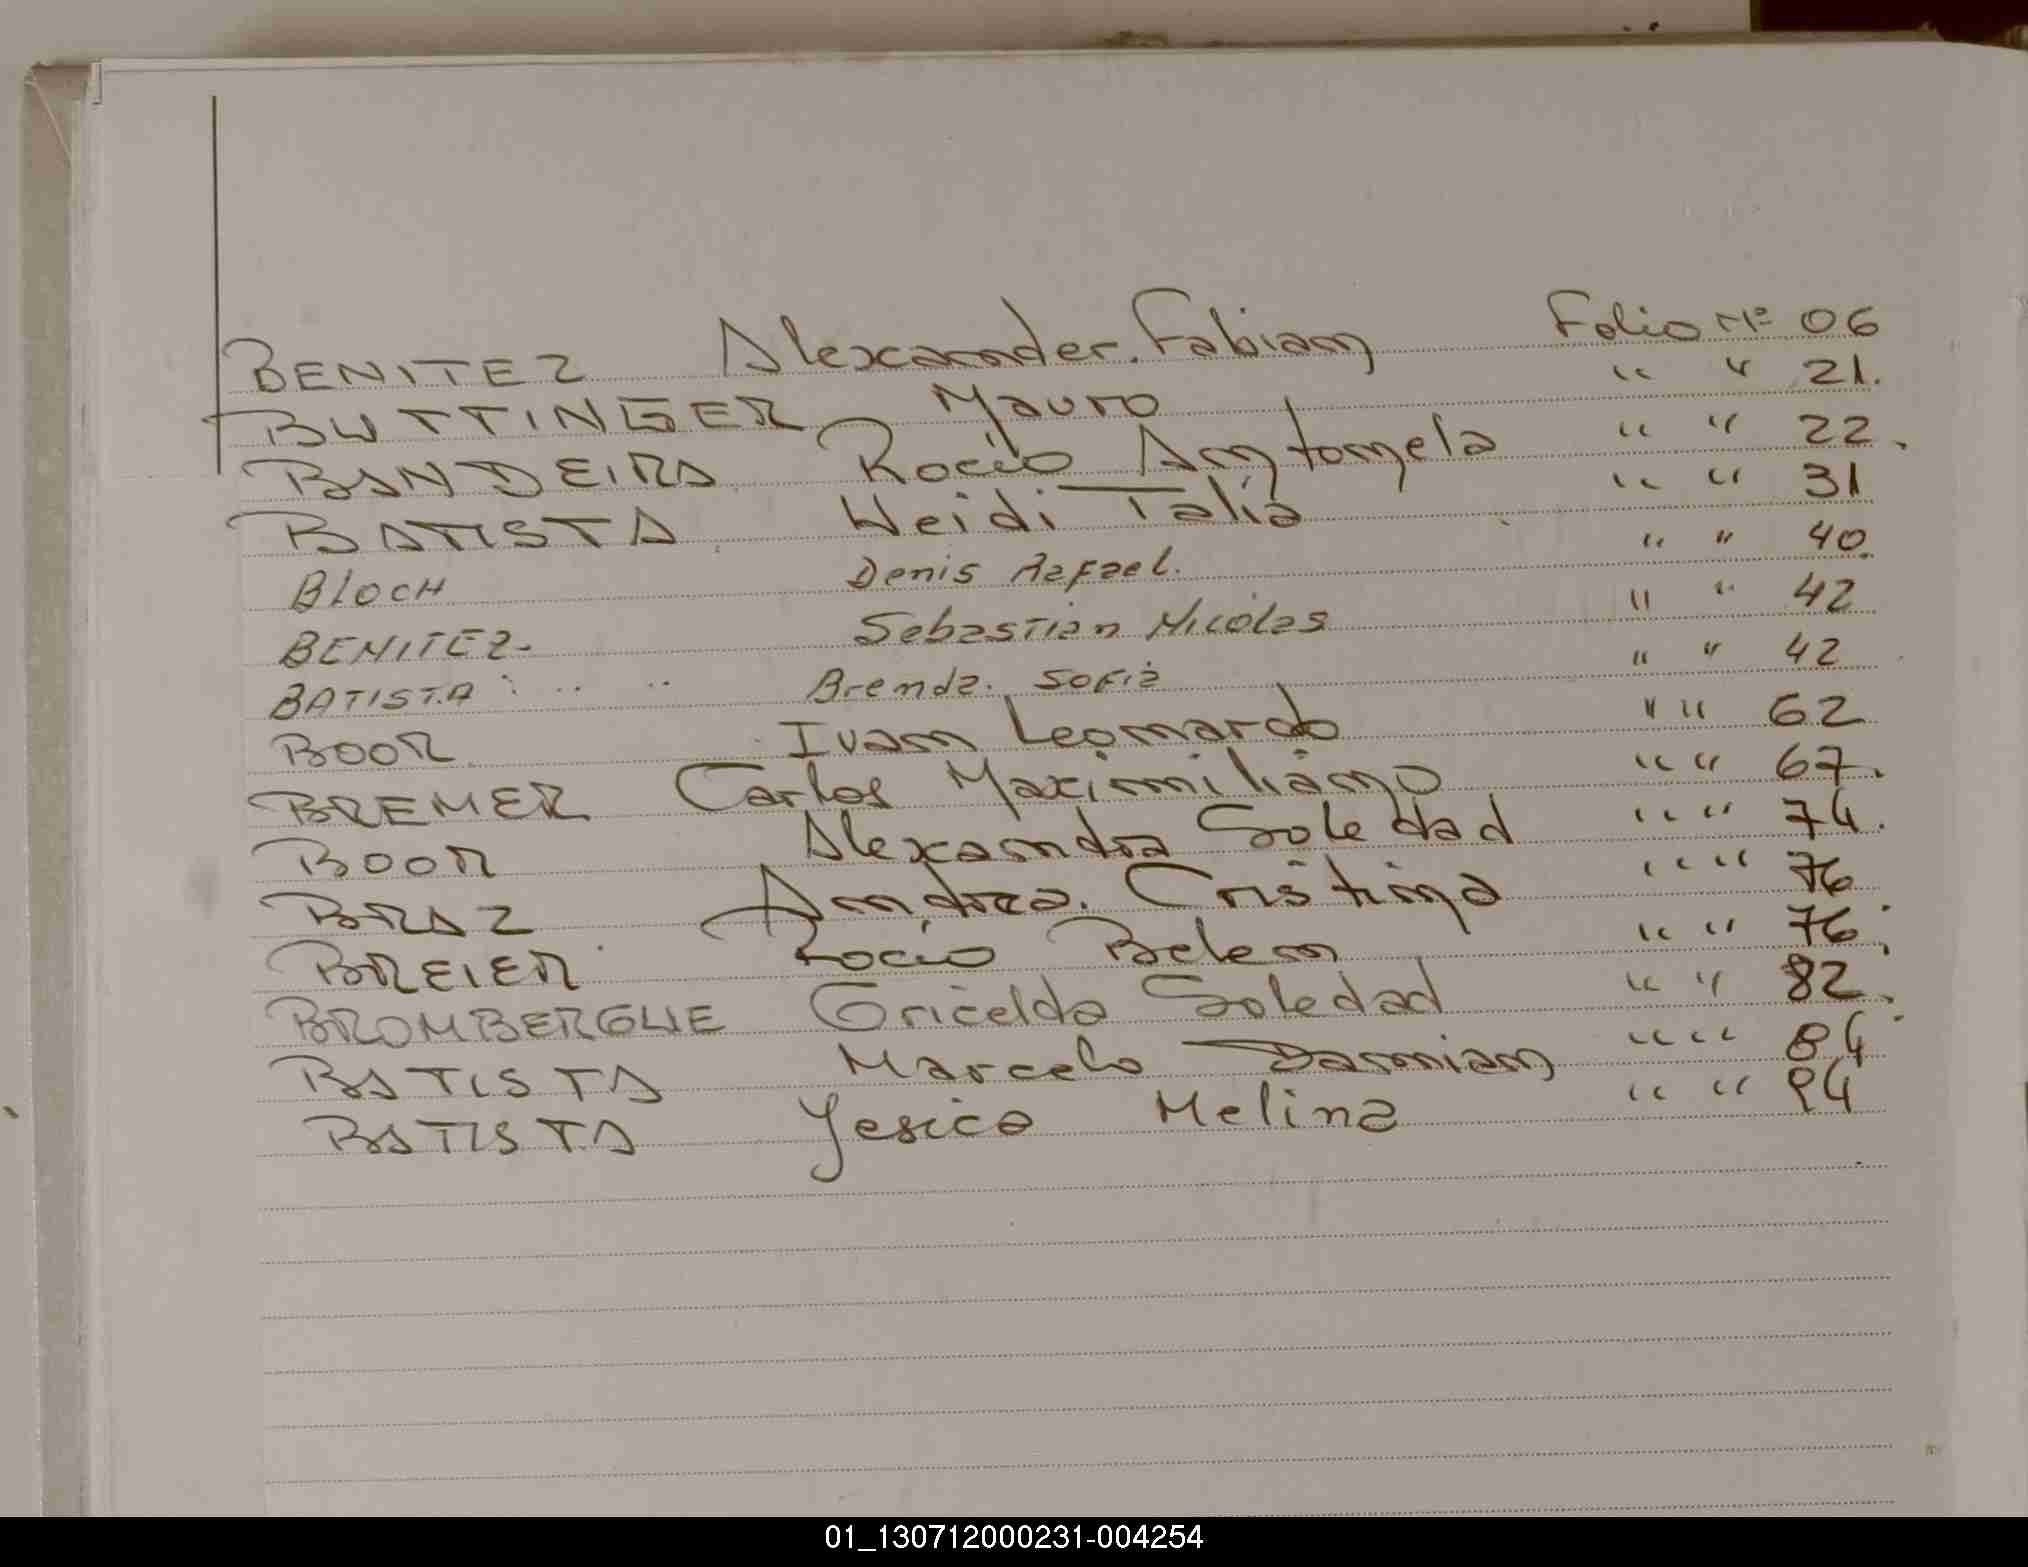 BENITEZ Alexander.Fabian Folio Nº 06
BUTTINGER Mauro " " 21.
BANDEIRA Rocio Antonela " " 22.
BATISTA Heidi Talia " " 31
BLOCH Denis Rafael. " " 40.
BENITEZ- Sebastian Nicolas " " 42
BATISTA Brenda. Sofia " " 42
BOOR Ivan Leonardo " " 62
BREMER Carlos Maximiliano " " 67.
BOOR Alexandra Soledad " " 74.
BRAZ Andrea. Cristina " " 76
BREIER Rocio Belen " " 76.
BROMBERGUE Gricelda Soledad " " 82.
BATISTA Marcelo Damian " " 84
BATISTA Yesica Melina " "
01_130712000231-004254